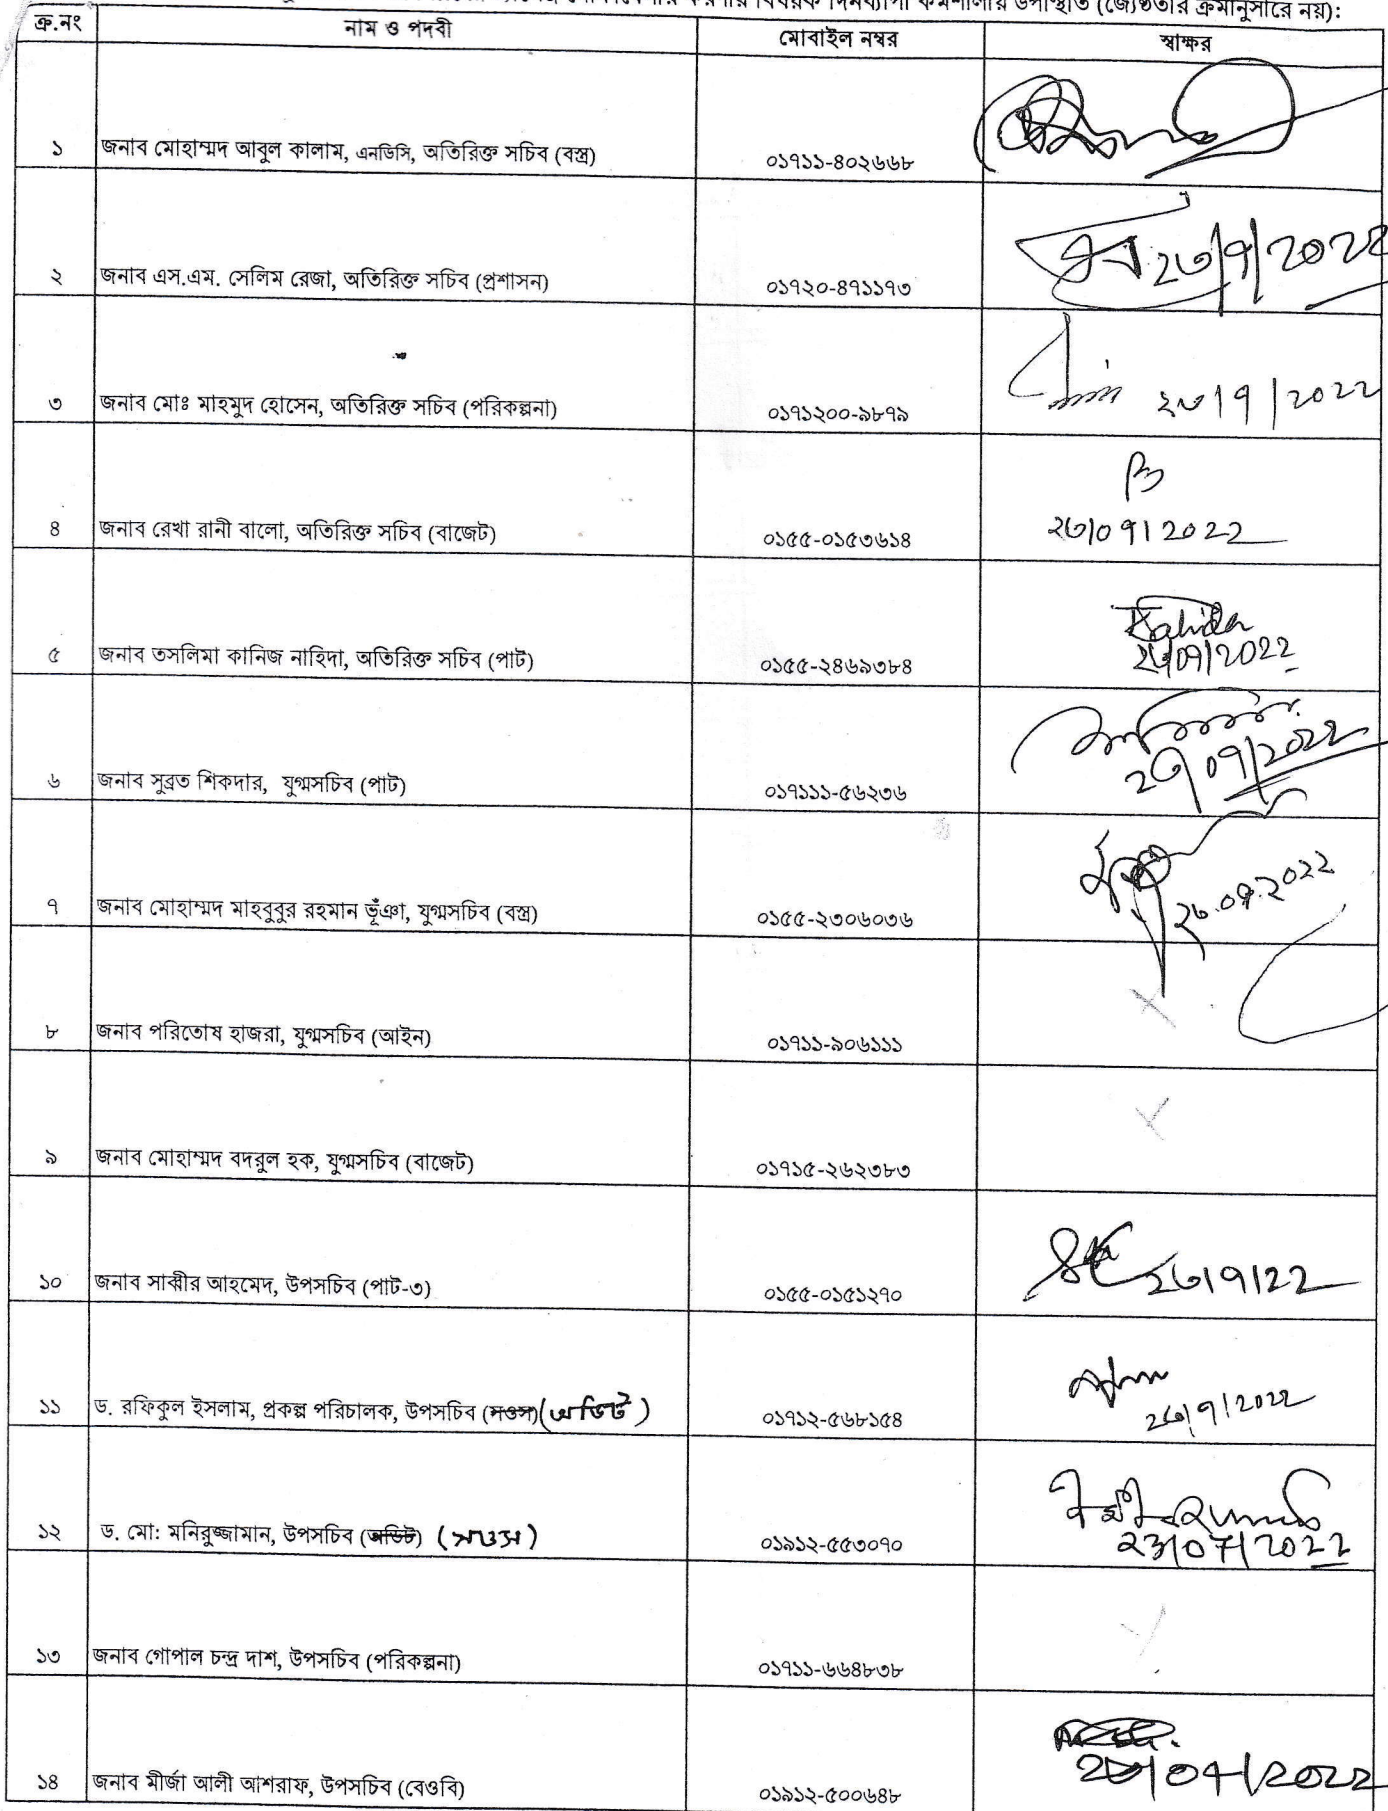 করণীয় বিষয়ক দিনব্যাপী কর্মশালায় উপস্থিতি (জ্যেষ্ঠতার ক্রমানুসারে নয়):
ক্র.নং নাম ও পদবী মোবাইল নম্বর স্বাক্ষর
১ জনাব মোহাম্মদ আবুল কালাম, এনডিসি, অতিরিক্ত সচিব (বস্ত্র) ০১৭১১-৪০২৬৬৮
২ জনাব এস.এম. সেলিম রেজা, অতিরিক্ত সচিব (প্রশাসন) ০১৭২০-৪৭১১৭৩ ২৩/৭/2022
৩ জনাব মোঃ মাহমুদ হোসেন, অতিরিক্ত সচিব (পরিকল্পনা) ০১৭১২০০-৯৮৭৯ ২৩/৭/2022
৪ জনাব রেখা রানী বালো, অতিরিক্ত সচিব (বাজেট) ০১৫৫-০১৫৩৬১৪
২৩/০৭/2022
৫ জনাব তসলিমা কানিজ নাহিদা, অতিরিক্ত সচিব (পাট) ০১৫৫-২৪৬৯৩৮৪ Nahida
২৩/০৭/2022
৬ জনাব সুব্রত শিকদার, যুগ্মসচিব (পাট) ০১৭১১১-৫৬২৩৬ ২৩/০৭/২০২২
৭ জনাব মোহাম্মদ মাহবুবুর রহমান ভূঁঞা, যুগ্মসচিব (বস্ত্র) ০১৫৫-২৩০৬০৩৬ ২৩.০৭.২০২২
৮ জনাব পরিতোষ হাজরা, যুগ্মসচিব (আইন) ০১৭১১-৯০৬১১১
৯ জনাব মোহাম্মদ বদরুল হক, যুগ্মসচিব (বাজেট) ০১৭১৫-২৬২৩৮৩
১০ জনাব সাব্বীর আহমেদ, উপসচিব (পাট-৩) ০১৫৫-০১৫১২৭০ ২৩/৭/22
১১ ড. রফিকুল ইসলাম, প্রকল্প পরিচালক, উপসচিব (সওস) (অডিট) ০১৭১২-৫৬৮১৫৪ ২৩/৭/2022
১২ ড. মো: মনিরুজ্জামান, উপসচিব (অডিট) (সওস) ০১৯১২-৫৫৩০৭০
23/07/2022
১৩ জনাব গোপাল চন্দ্র দাশ, উপসচিব (পরিকল্পনা) ০১৭১১-৬৬৪৮৩৮
১৪ জনাব মীর্জা আলী আশরাফ, উপসচিব (বেওবি) ০১৯১২-৫০০৬৪৮